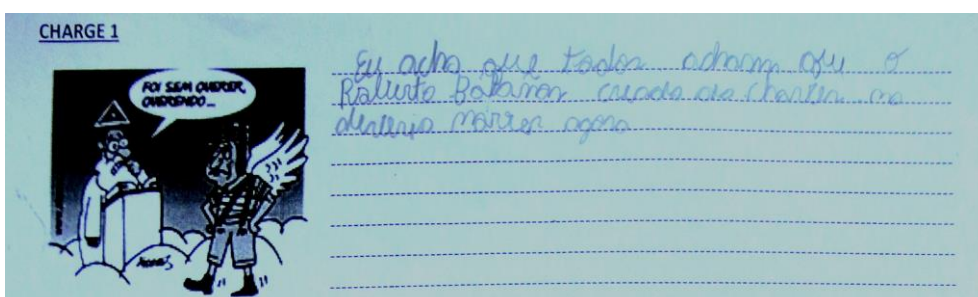 CHARGE 1
FOI SEM QUERER,
QUERENDO...
Eu acho que todos acham que o
Roberto Bolanos criador do Chaves no
deveria morrer agora